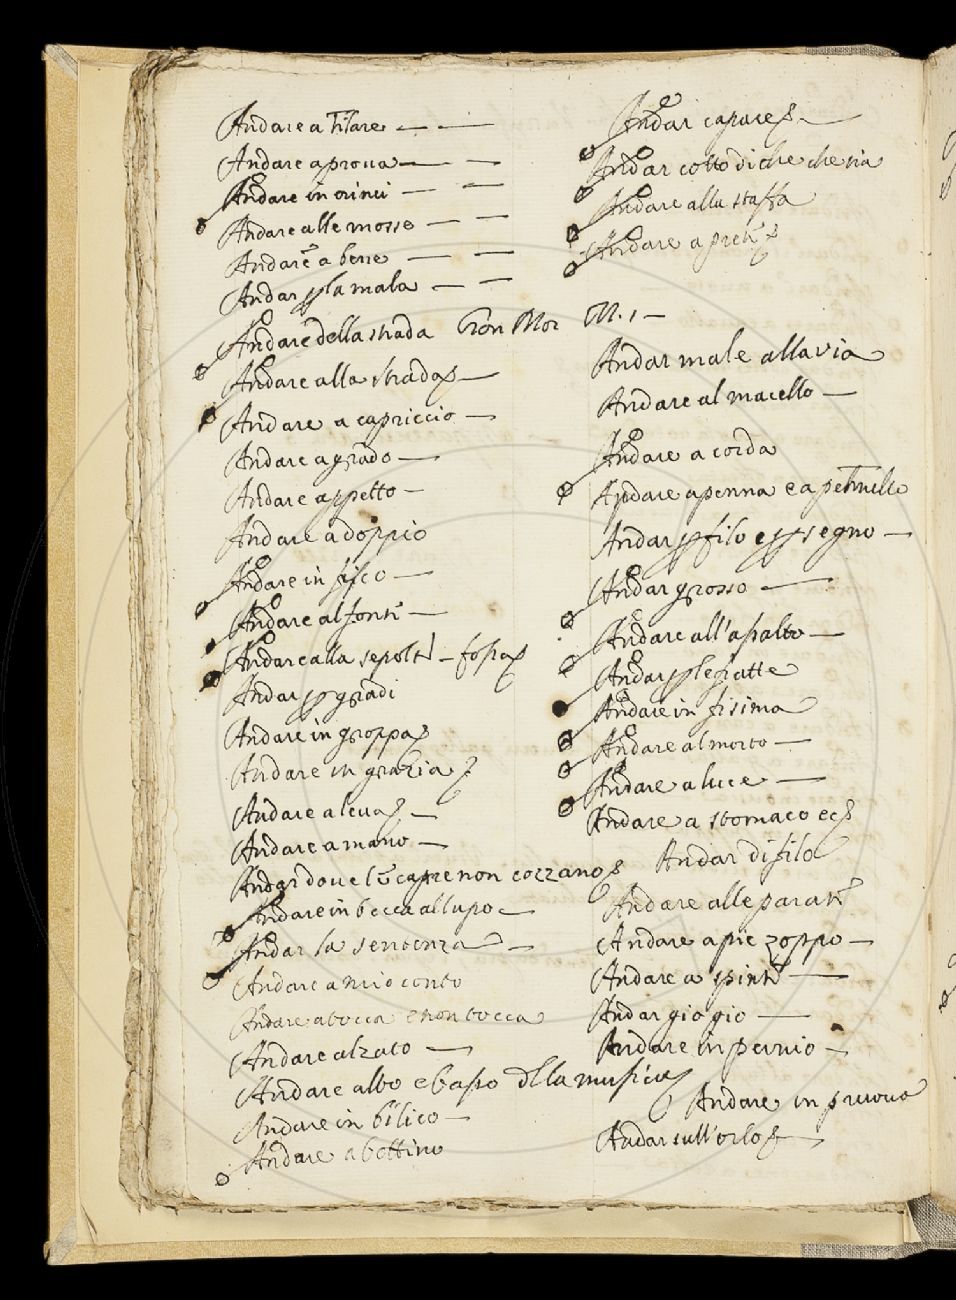 Andare a
Andare a proua
Andare in orinci
Andare alle mosse
Andare a bere
Andar p la mala
Andare della strada Gron Mor M. 1
Andare alla strada
Andare a capriccio
Andare a grado
Andare a petto
Andare a doppio
Andare in fisco
Andare al fonte
Andare alla sepolt fossa
Andar p gradi
Andare in groppa
Andare in grazia
Andare a leua
Andare a mano
Andar doue le capre non cozzano
Andare in bocca al lupo
Andar la sentenza
Andare a mio conto
Andare a bocca e non bocca
Andare alzato
Andare alto e basso della musica
Andare in bilico
Andare a bottino
Andar capare
Andar cotto di che che sia
Andare alla staffa
Andare a
Andar male alla via
Andare al macello
Andare a corda
Andare a penna e a pennello
Andar p filo e p segno
Andar grosso
Andare all'apalto
Andar p le fratte
Andare in fisima
Andare al morto
Andare a luce
Andare a stomaco ec
Andar di filo
Andare alle parati
Andare a pie zoppo
Andare a spinte
Andar gio gio
Andare in pernio
Andare in pruova
Andar sull'orlo